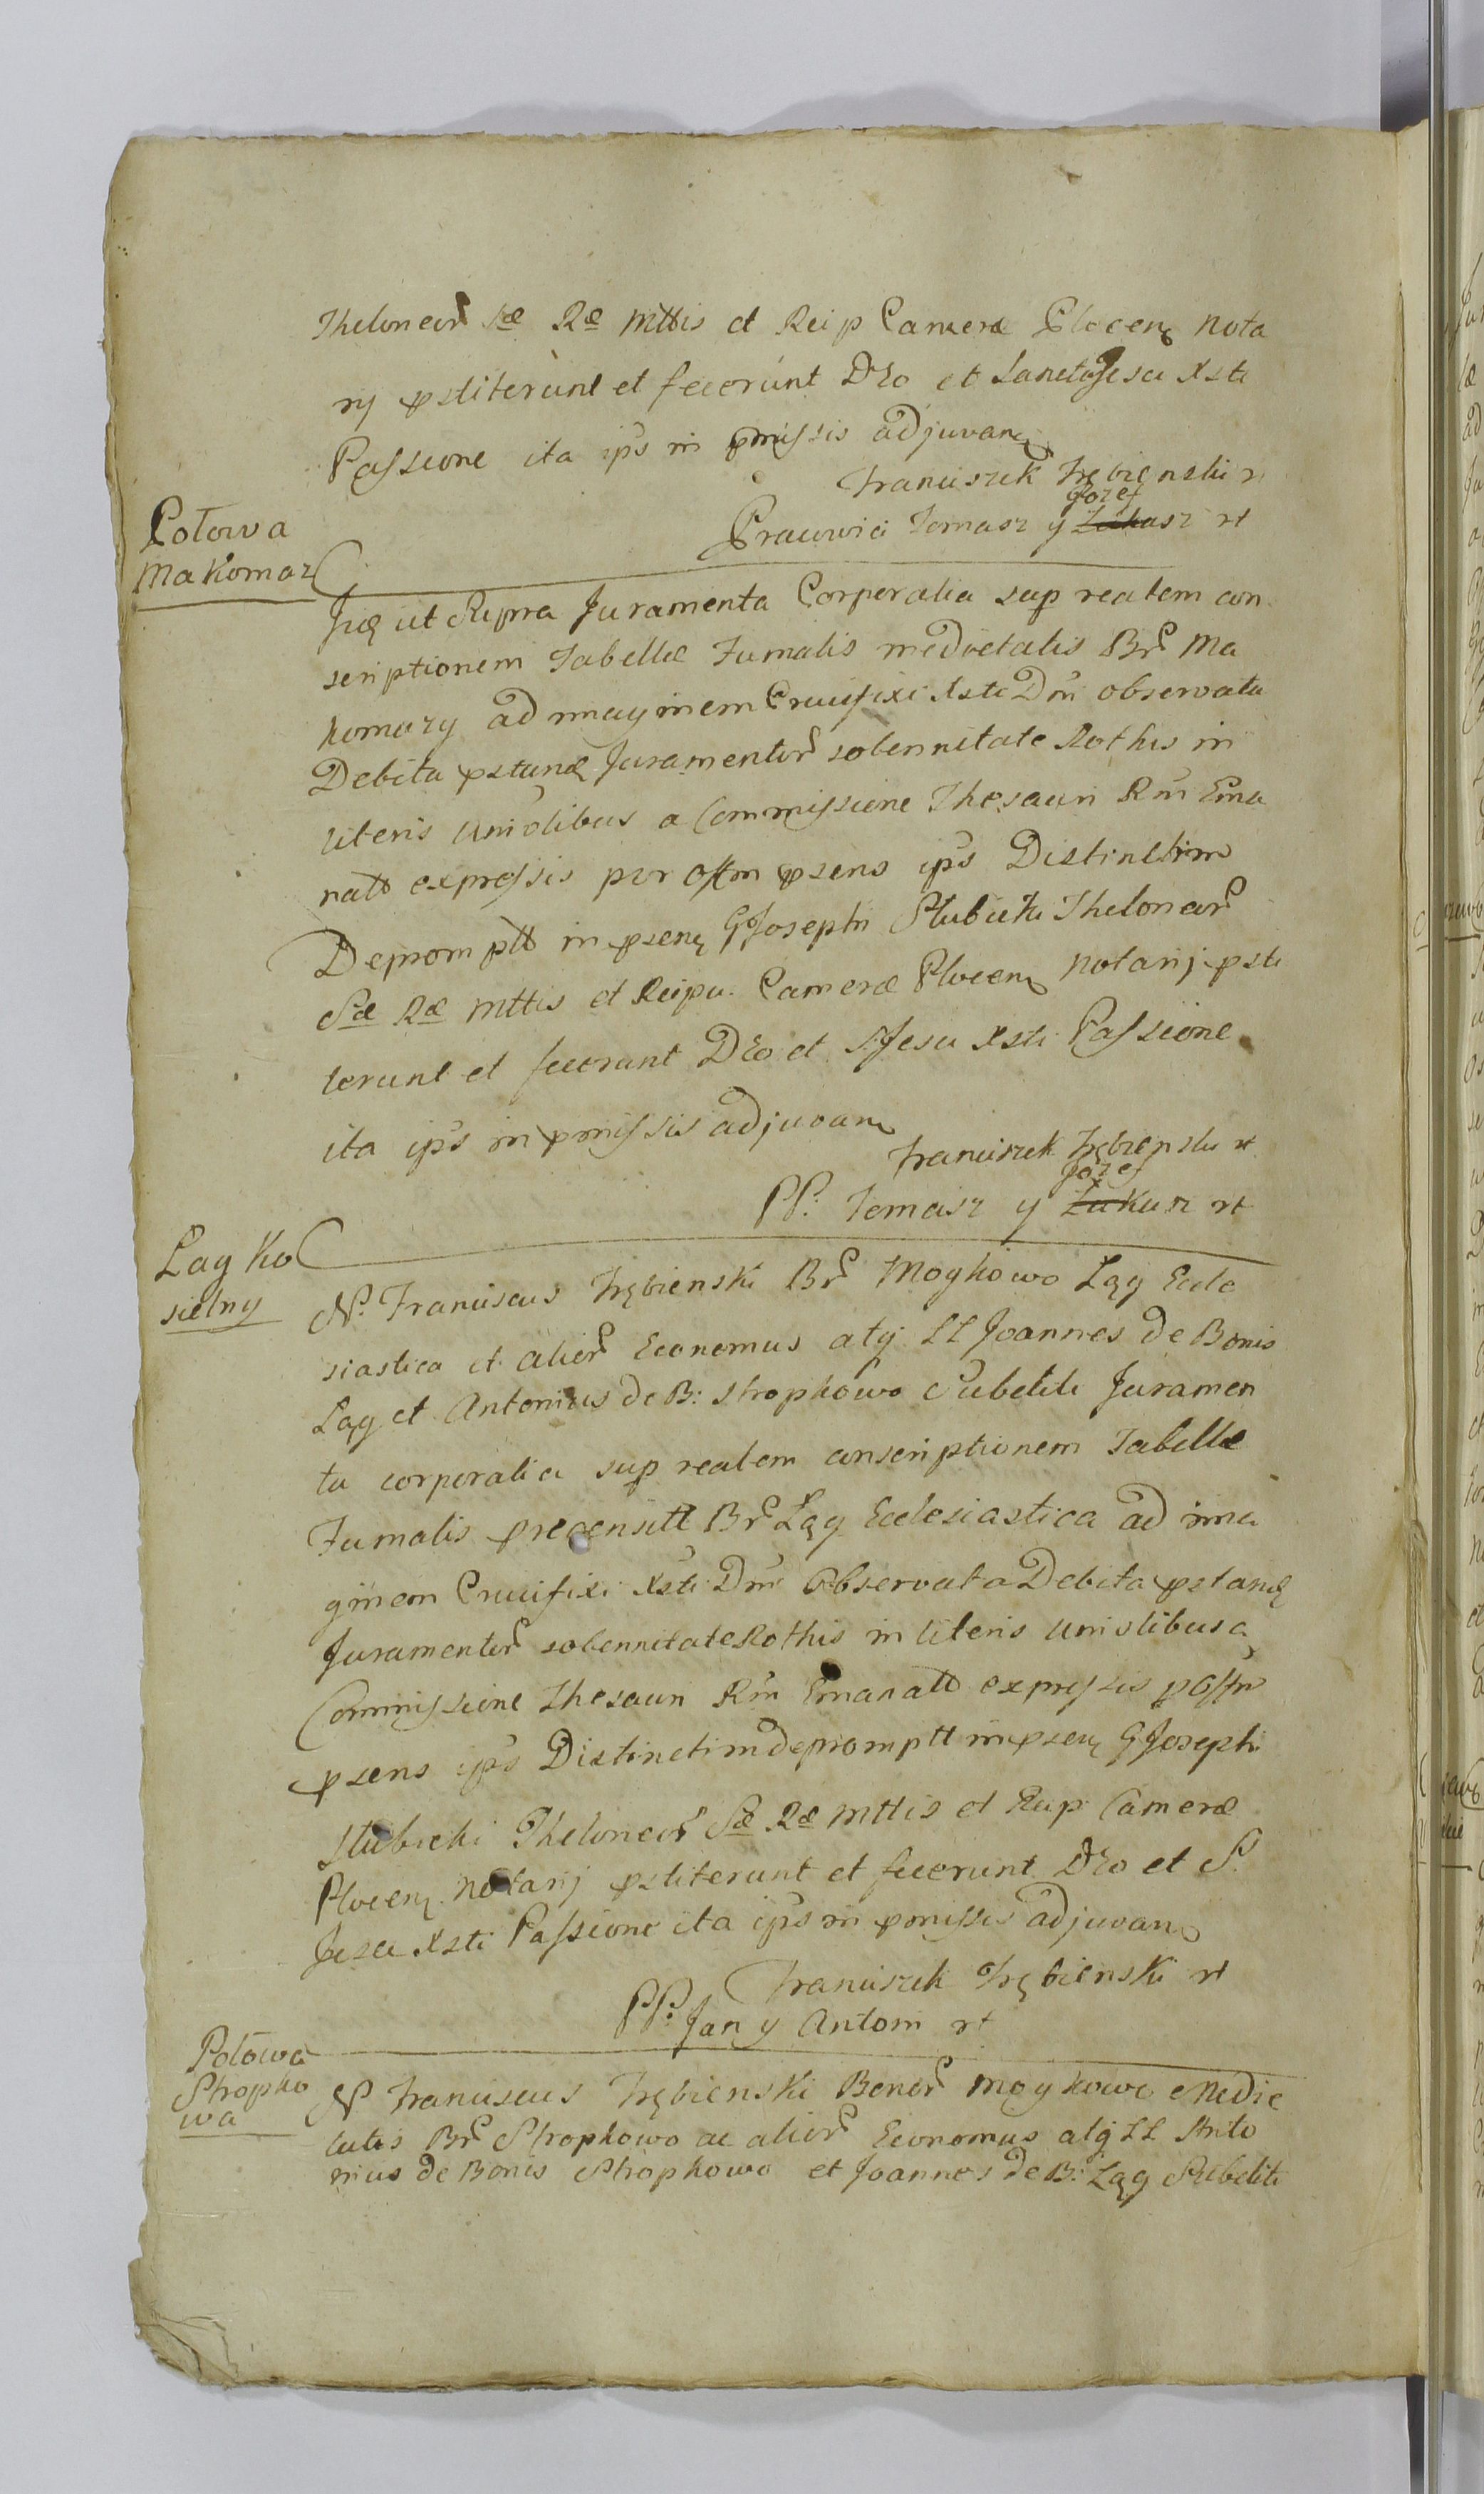 Theloneor Sæ Ræ Mttis et Reip Cameræ Plocen Nota
rij pstiterunt et fecerunt Deo et Sancta Jesu Xsti
Passione ita ips in pmissis adjuvan
Franciszek Trębienski
Józef
Pracowici Tomasz y Łukasz rt
Połowa
Makomaz
Iidē ut Supra Juramenta Corporalia sup realem con
scriptionem Tabellæ Fumalis medietatis Br Ma
komazy ad imaginem Crucifixi Xsti Dni observata
Debita pstand Juramentor solennitate Rothis in
literis Uniolibus a Commissione Thesauri Rni Ema
natt expressis per Ossm psens ips Distinctim
Depromptt in psen G Josephi Słubicki Theloneor
Sæ Ræ Mttis et Reipu. Cameræ Plocen Notarij psti
terunt et fecerunt Deo et S Jesu Xsti Passione
ita ips in pmissis adjuvan
Franciszek Trębienski rt
Józef
PP. Tomasz y Łukasz rt
Łąg Ko
sielny
N. Franciscus Trębienski Br Moykowo Łąg Eccle
siastica et alior Economus atq LL Joannes de Bonis
Łąg et Antonius de B: Stropkowo Subditi Juramen
ta corporalia sup realem conscriptionem Tabellæ
Fumalis precensitt Br Łąg Ecclesiastica ad ima
ginem Crucifixi Xsti Dni Observata Debita pstand
Juramentor solennitate Rothis in literis Uniolibus a
Commissione Thesauri Rni Emanatt expressis p Ossm
psens ips Distinctim depromptt in psen G Josephi
Słubicki Theloneor Sæ Ræ Mttis et Reip Cameræ
Plocen Notarij pstiterunt et fecerunt Deo et S.
Jesu Xsti Passione ita ips in pmissis adjuvan
Franciszek Trębienski rt
PP. Jan y Antoni rt
Połowa
Stropko
wa
N Franciscus Trębienski Bonor Moykowo Medie
tatis Br Stropkowo ac alior Economus atq LL Anto
nius de Bonis Stropkowo et Joannes de B: Łąg Subditi